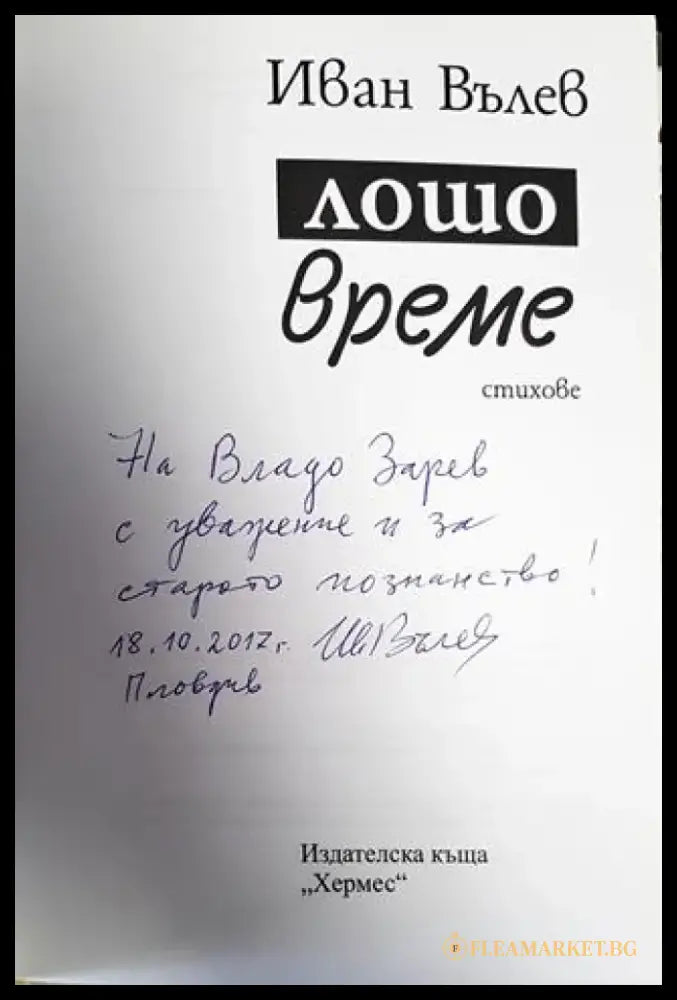 Иван Вълев
лошо
време
стихове
На Владо Зарев
с уважение и за
старото познанство!
18.10.2017г. Ив Вълев
Пловдив
Издателска къща
„Хермес“
FLEAMARKET.BG